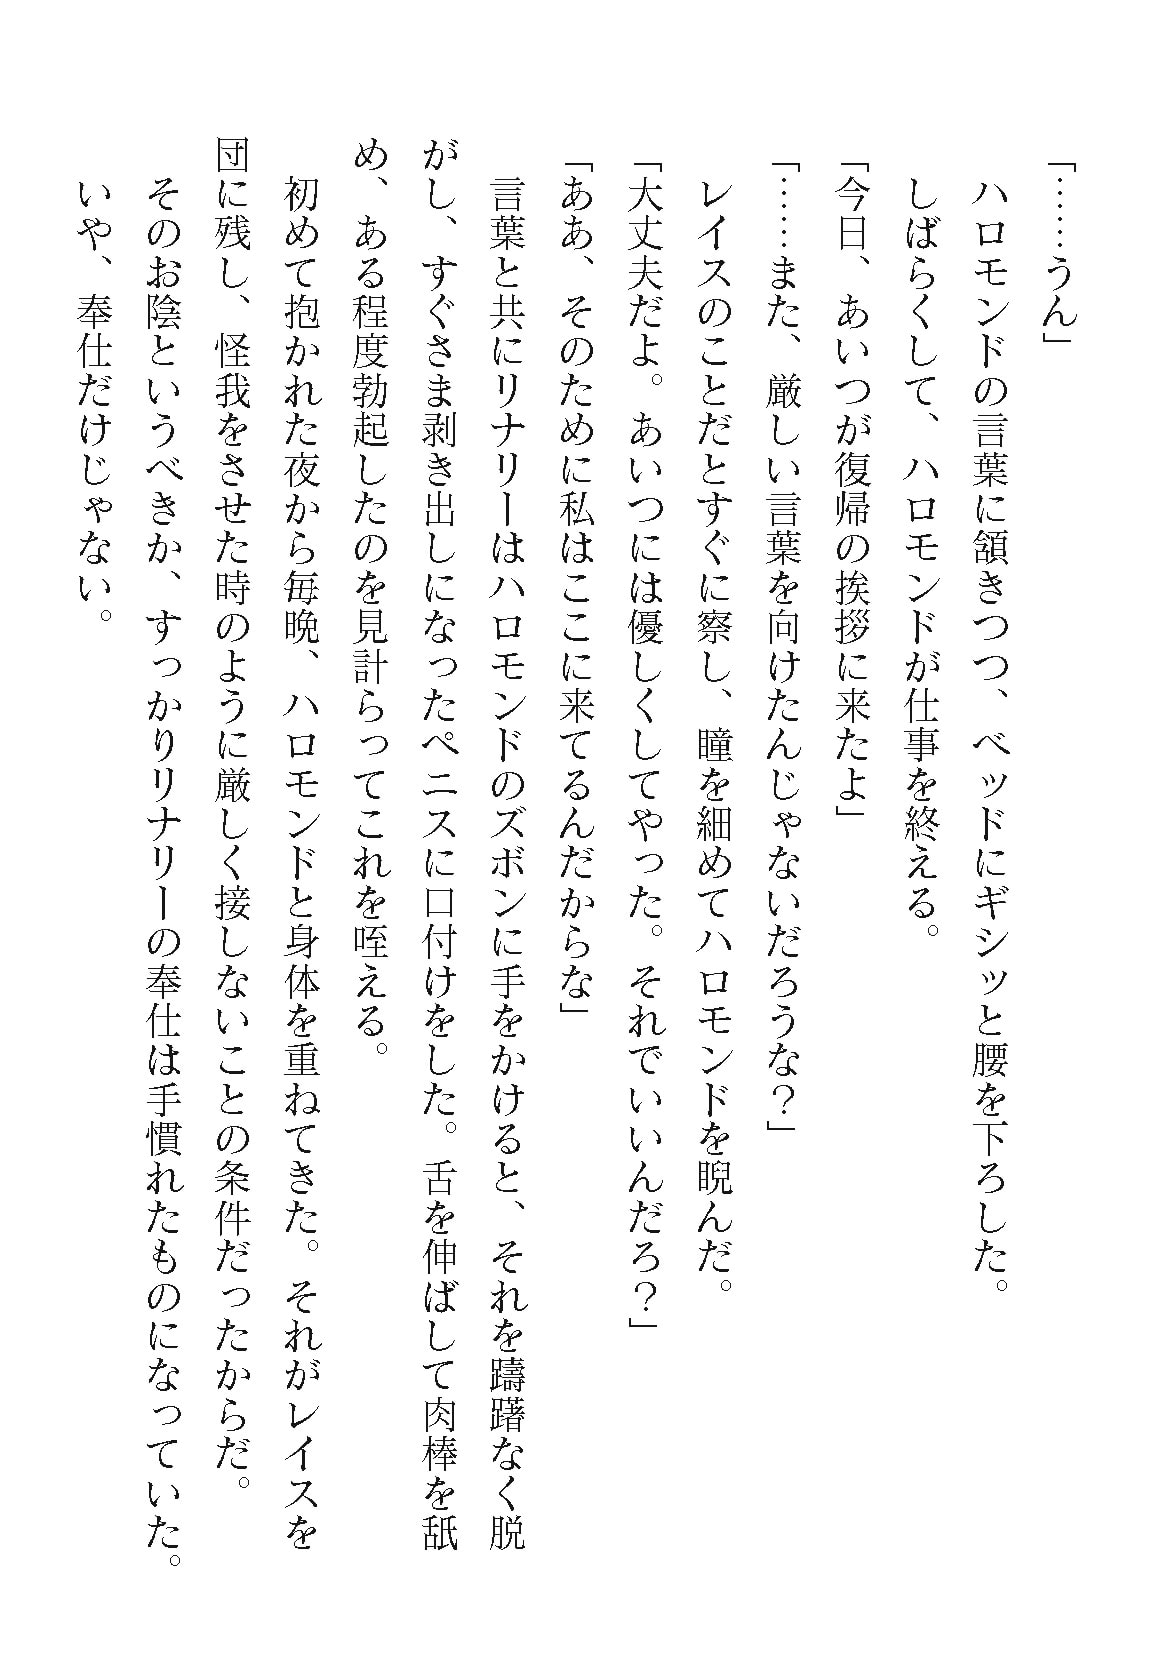 「……うん」
　ハロモンドの言葉に頷きつつ、ベッドにギシッと腰を下ろした。
　しばらくして、ハロモンドが仕事を終える。
「今日、あいつが復帰の挨拶に来たよ」
「……また、厳しい言葉を向けたんじゃないだろうな？」
　レイスのことだとすぐに察し、瞳を細めてハロモンドを睨んだ。
「大丈夫だよ。あいつには優しくしてやった。それでいいんだろ？」
「ああ、そのために私はここに来てるんだからな」
　言葉と共にリナリーはハロモンドのズボンに手をかけると、それを躊躇なく脱
がし、すぐさま剥き出しになったペニスに口付けをした。舌を伸ばして肉棒を舐
め、ある程度勃起したのを見計らってこれを咥える。
　初めて抱かれた夜から毎晩、ハロモンドと身体を重ねてきた。それがレイスを
団に残し、怪我をさせた時のように厳しく接しないことの条件だったからだ。
　そのお陰というべきか、すっかりリナリーの奉仕は手慣れたものになっていた。
　いや、奉仕だけじゃない。